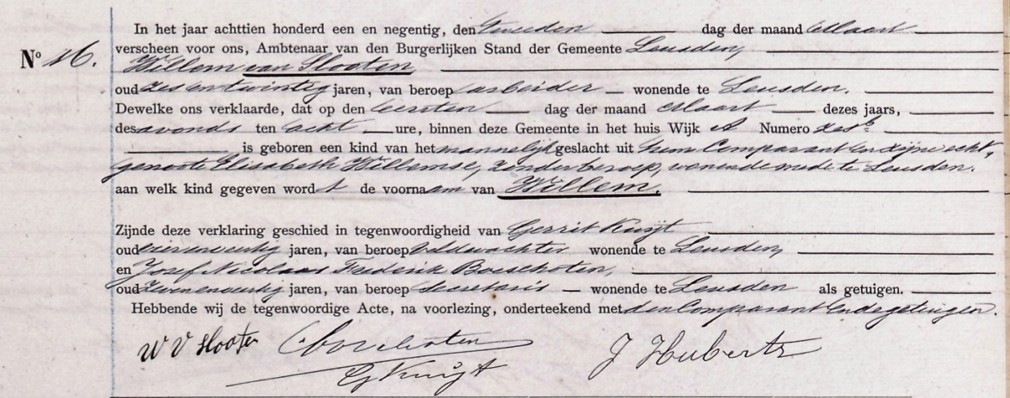 In het jaar achttien honderd een en negentig, den tweeden dag der maand Maart
verscheen voor ons, Ambtenaar van den Burgerlijken Stand der Gemeente Leusden,
No 16. Willem van Slooten
oud zes en twintig jaren, van beroep arbeider wonende te Leusden.
Dewelke ons verklaarde, dat op den eersten dag der maand Maart dezes jaars,
des avonds ten acht ure, binnen deze Gemeente in het huis Wijk A Numero zes
is geboren een kind van het mannelijk geslacht uit hem Comparant en zijne echt,
genoote Elisabeth Willemse, zonder beroep, wonende mede te Leusden.
aan welk kind gegeven wordt de voornaam van Willem.
Zijnde deze verklaring geschied in tegenwoordigheid van Gerrit Kuijt
oud jaren, van beroep Veldwachter wonende te Leusden,
en Josef Nicolaas Frederik Boeschoten,
oud jaren, van beroep Secretaris wonende te Leusden als getuigen.
Hebbende wij de tegenwoordige Acte, na voorlezing, onderteekend met den Comparant en de getuigen.
W V Slooten Boeschoten J Huberts
G Kuijt